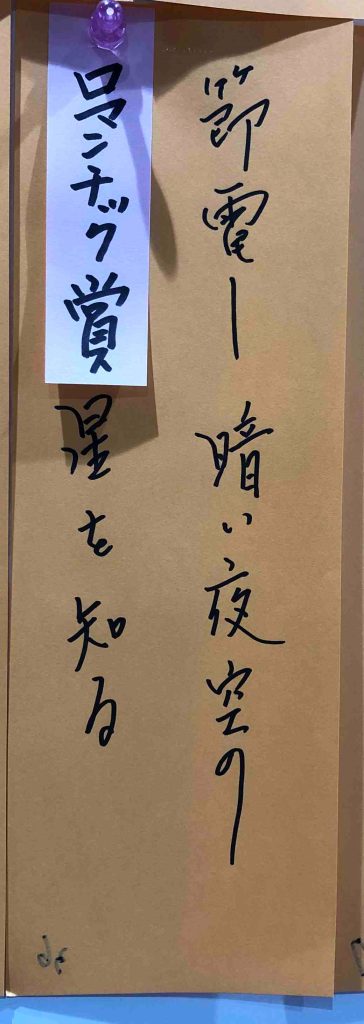 節電し 暗い夜空の
星を知る
ロマンチック賞